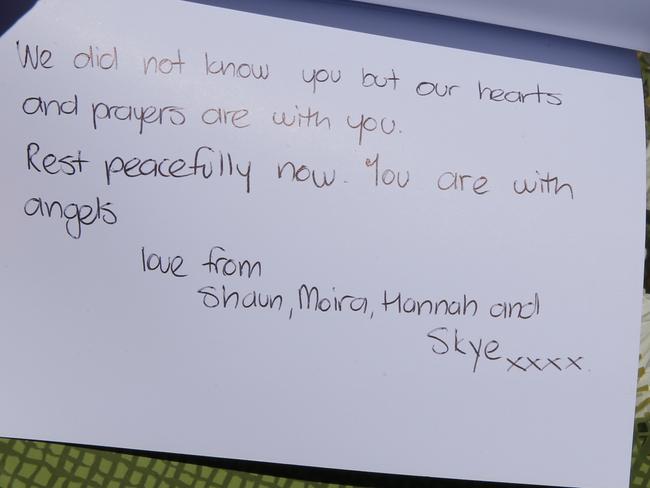 We did not know you but our hearts
and prayers are with you.
Rest peacefully now. You are with
angels
love from
Shaun, Moira, Hannah and
Skye xxxx.